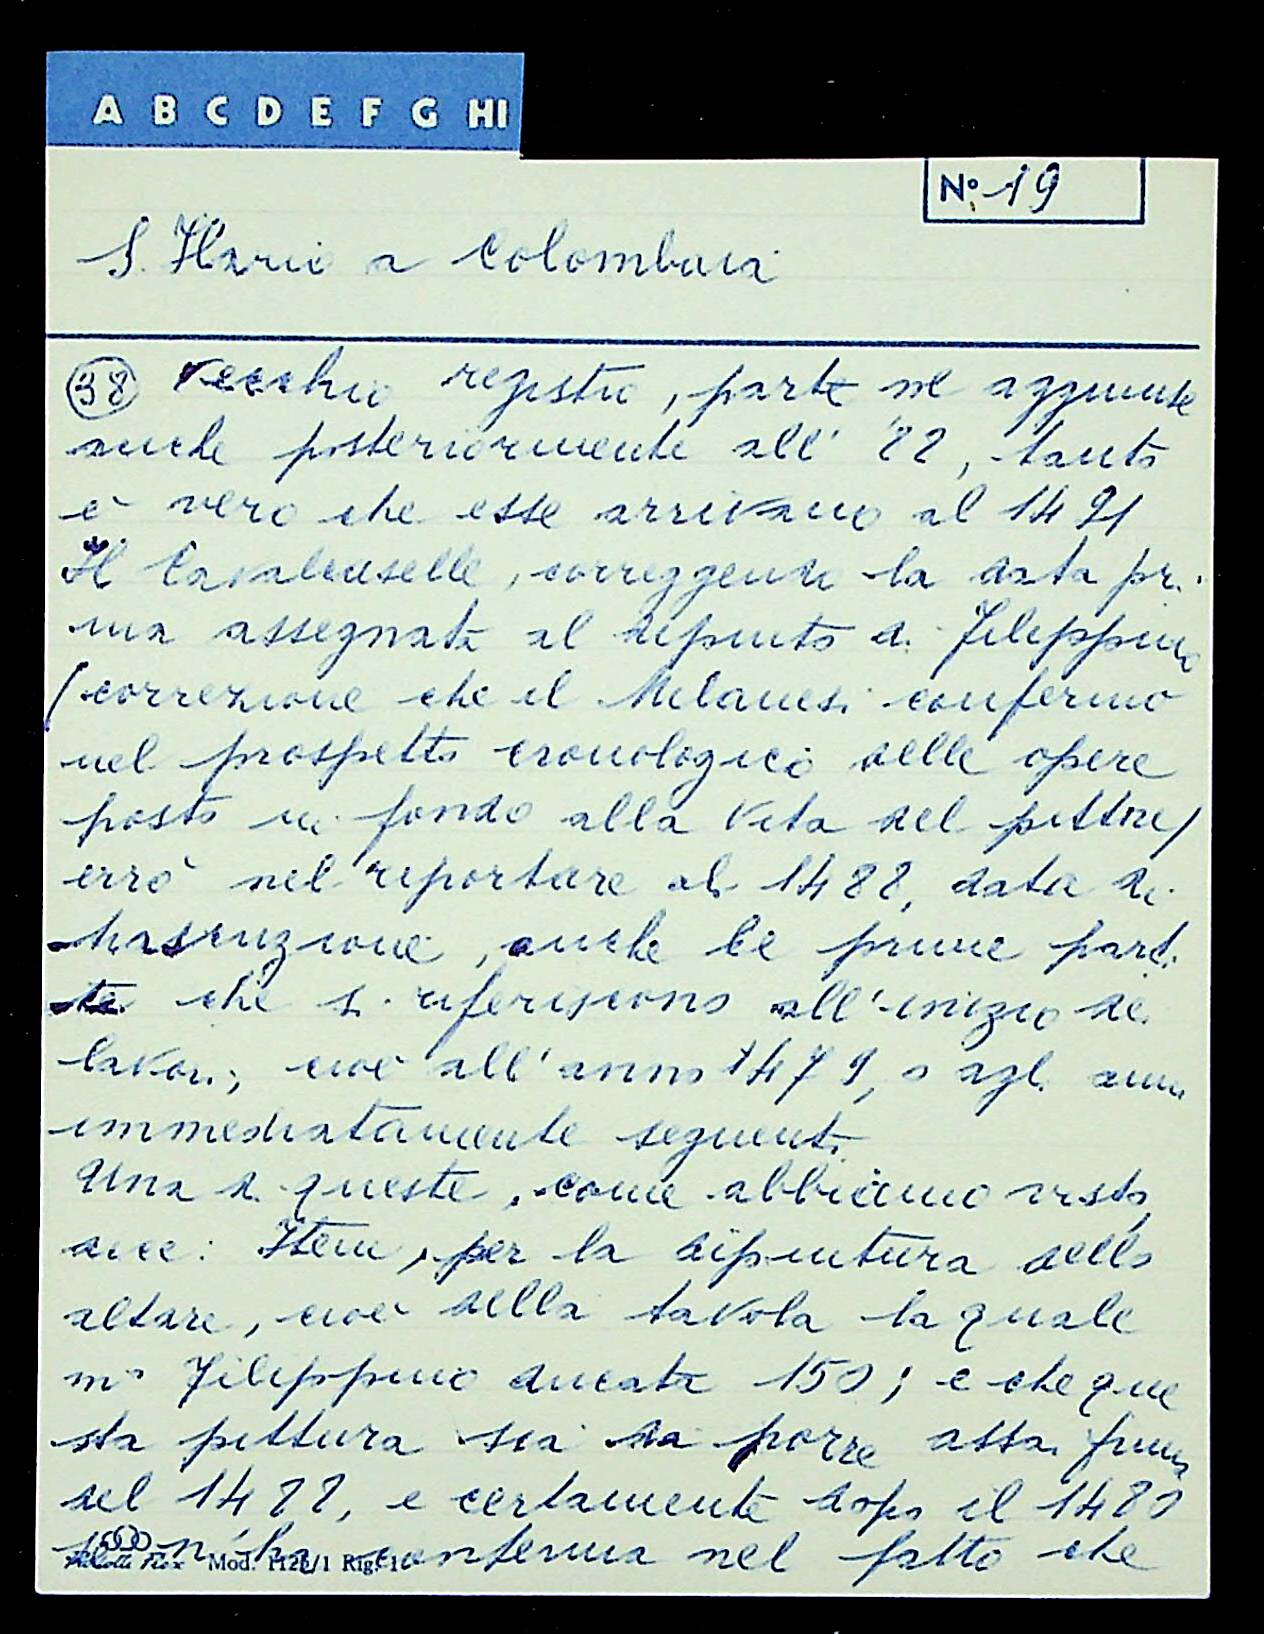 A B C D E F G HI
No. 19
S. Ilario a Colombaia
(38) Vecchio registro, parte ne aggiunse
anche posteriormente all' '88, tanto
è vero che esse arrivano al 1491
Il Cavalcaselle, correggendo la data pri-
ma assegnata al dipinto di Filippino
(correzione che il Milanesi confermò
nel prospetto cronologico delle opere
posto in fondo alla Vita del pittore)
errò nel riportare al 1488, data di
trascrizione, anche le prime parti-
te che si riferiscono all'inizio dei
lavori, cioè all'anno 1479, o agli anni
immediatamente seguenti.
Una di queste, come abbiamo visto,
dice: Item, per la dipintura dello
altare, cioè della tavola la quale
mo Filippino ducati 150; e che que
sta pittura sia da porre assai prima
del 1488, e certamente dopo il 1480
conferma nel fatto che
Mod. 1126/1 Rig. 10